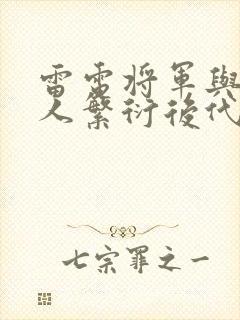 雷雷將軍與
人繁衍後代
七宗罪之一